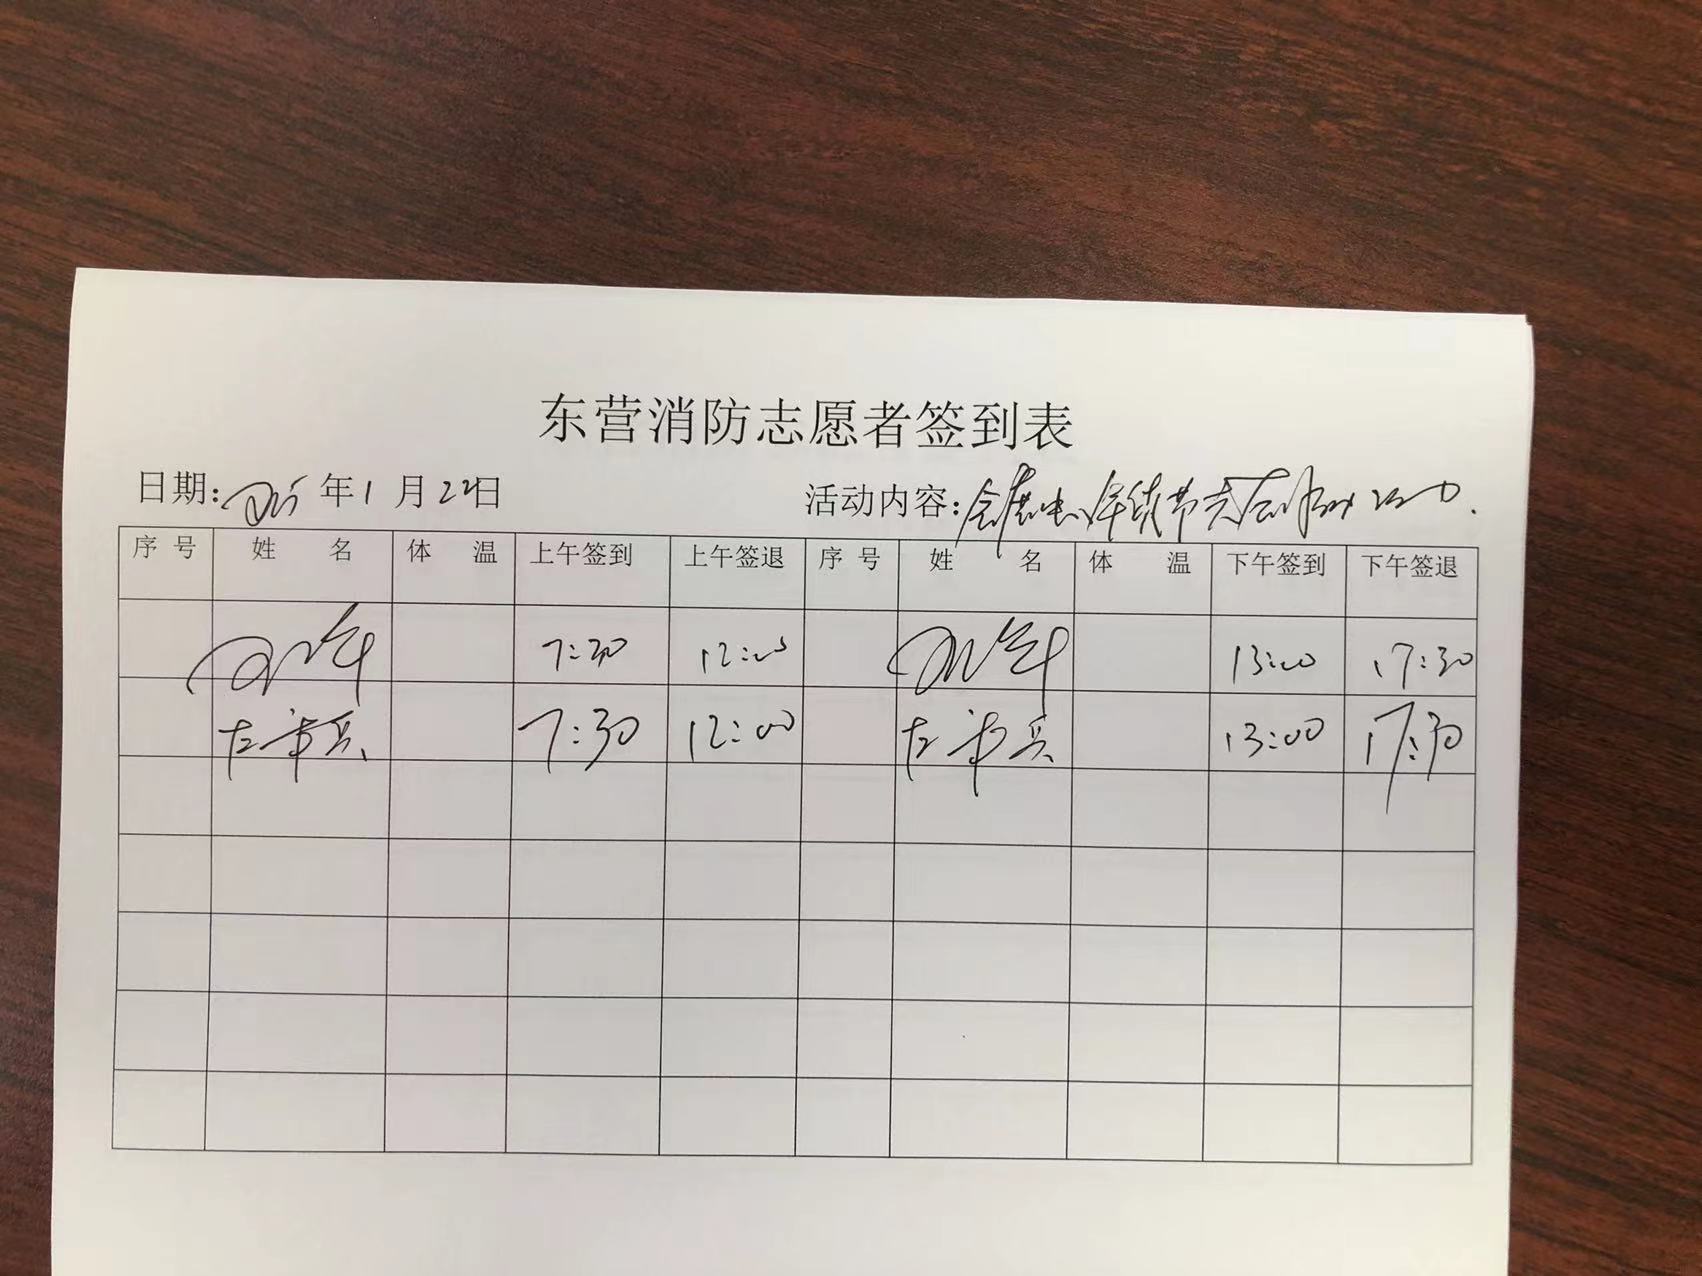 东营消防志愿者签到表
日期: 2025 年 1 月 22日 活动内容: 会展中心年货节
序 号 姓 名 体 温 上午签到 上午签退 序 号 姓 名 体 温 下午签到 下午签退
7:30 12:00 13:00 17:30
左 兵 7:30 12:00 左 兵 13:00 17:30